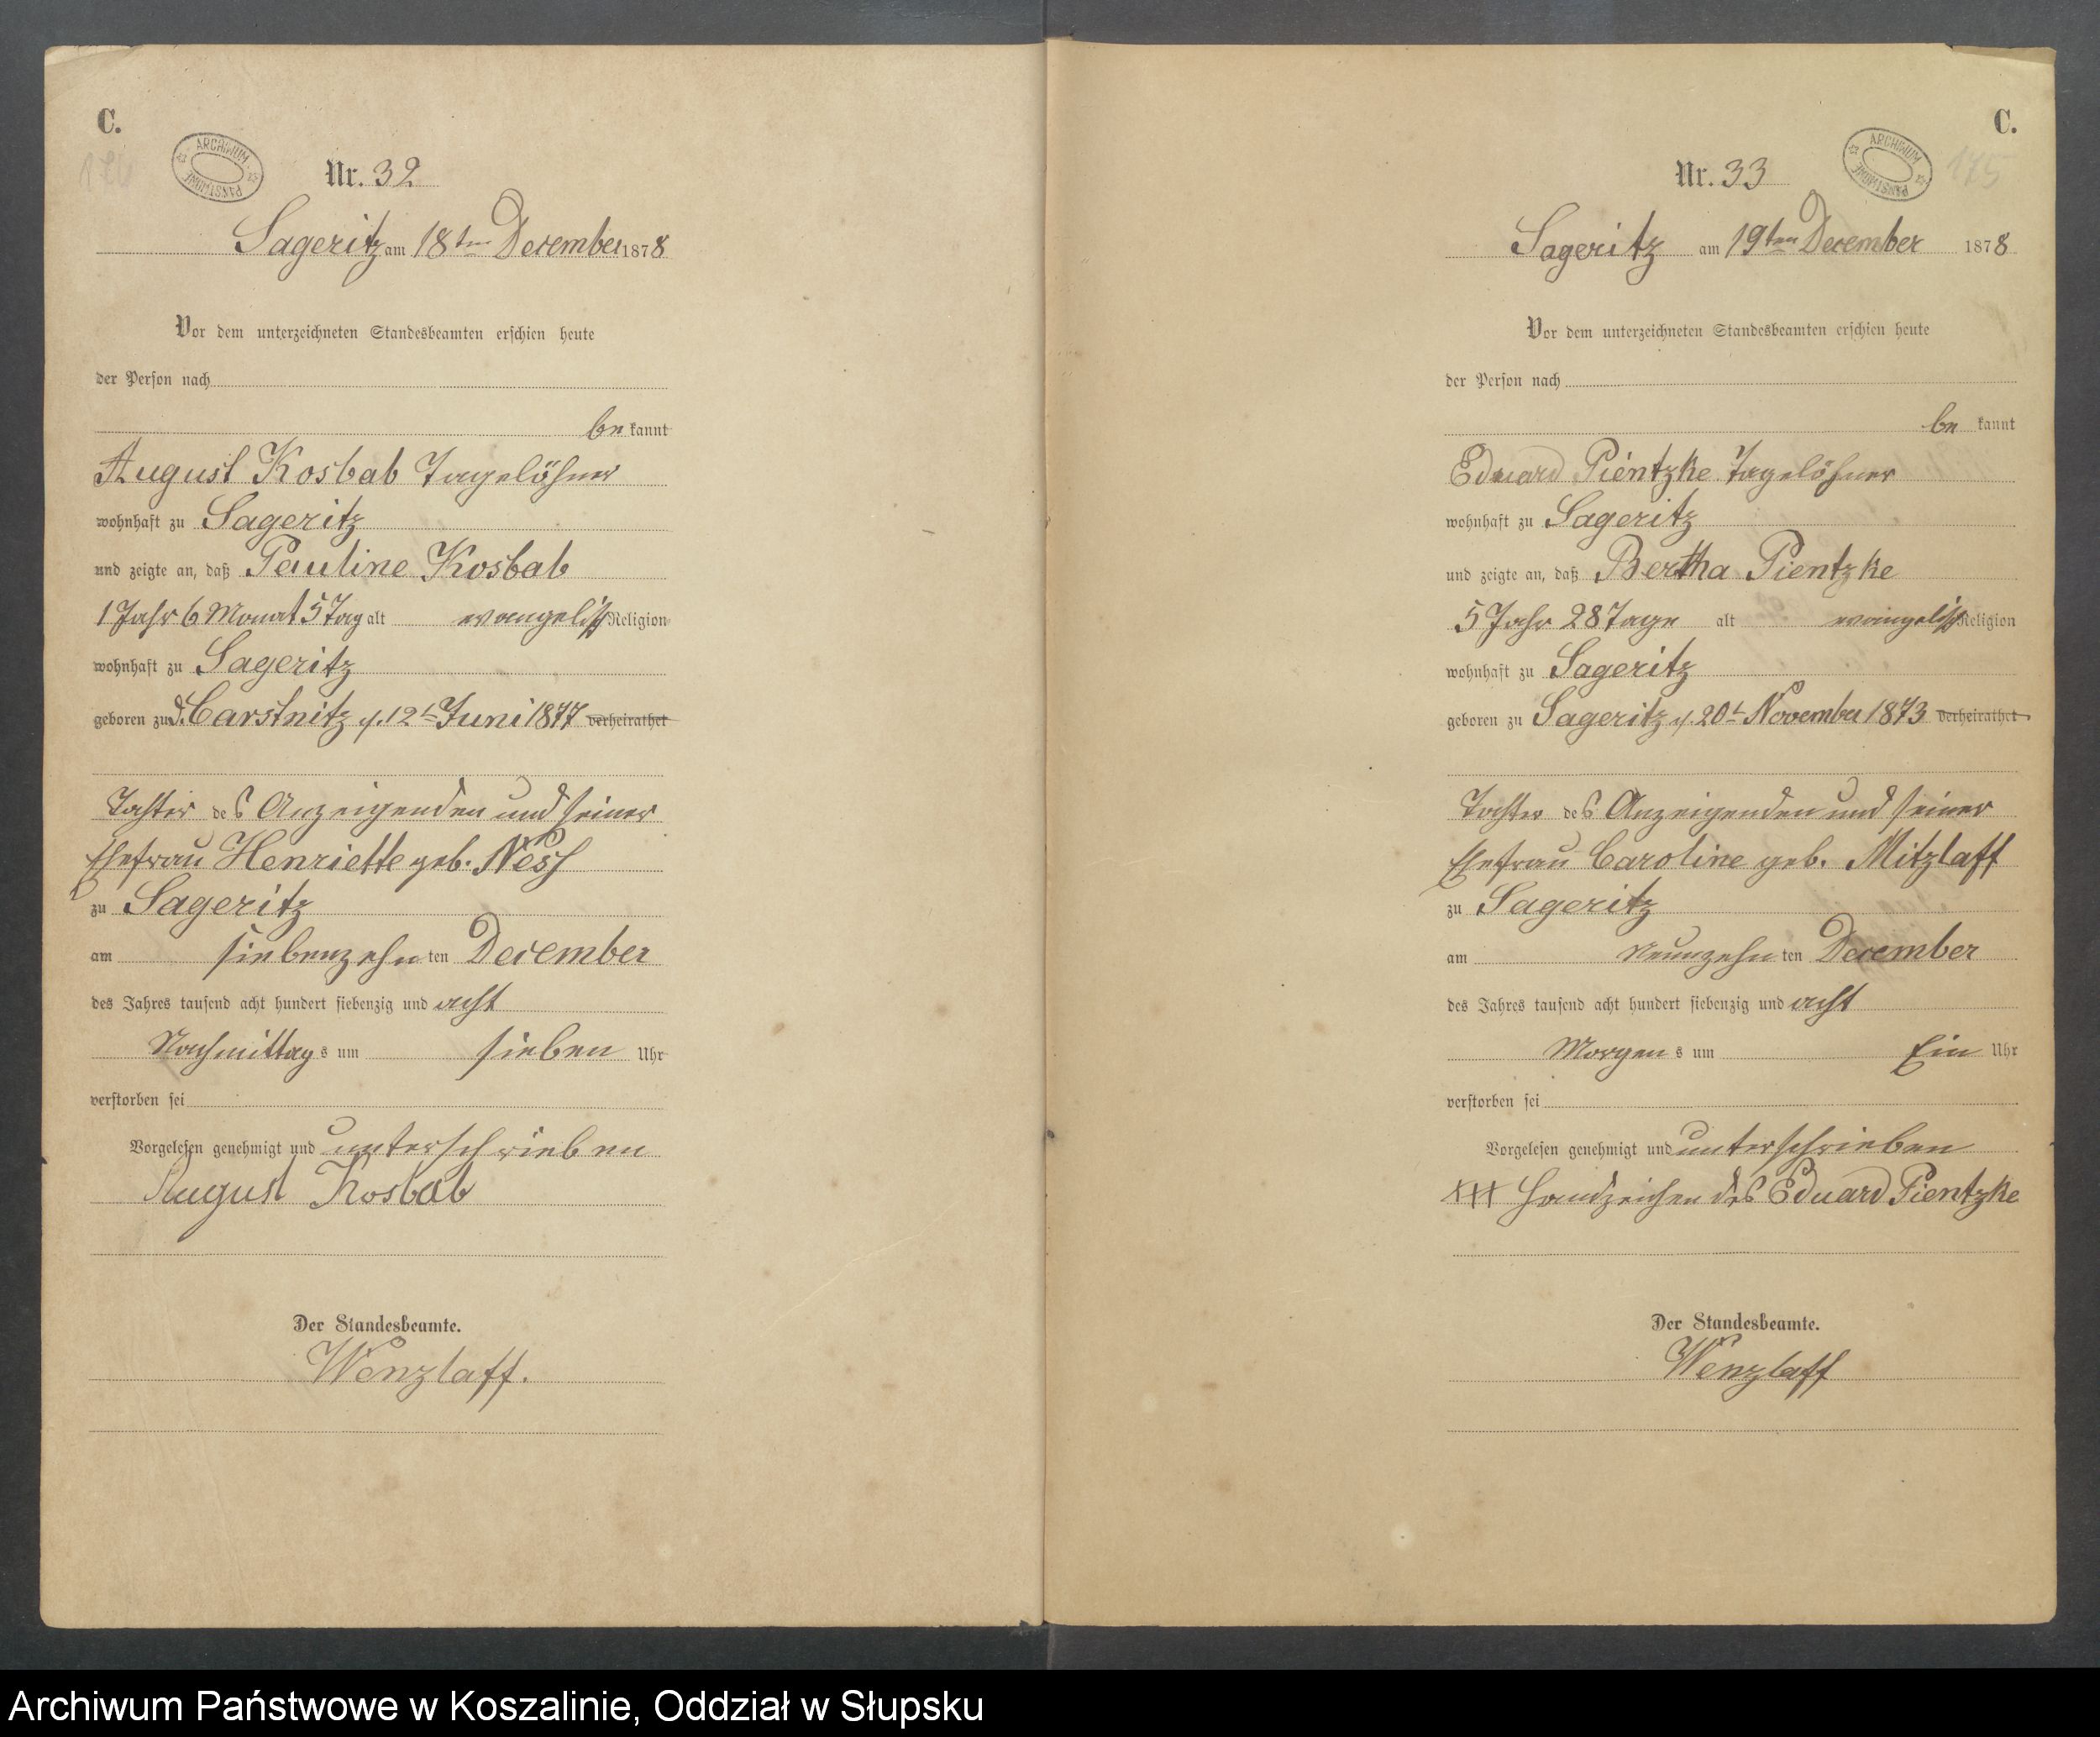 C.
ARCHIWUM PAŃSTWOWE
Nr. 32
Sageritz am 18ten December 1878
Vor dem unterzeichneten Standesbeamten erschien heute
der Person nach
be kannt
August Kosbab Tagelöhner
wohnhaft zu Sageritz
und zeigte an, daß Pauline Kosbab
1 Jahr 6 Monat 5 Tag alt evangelisch Religion
wohnhaft zu Sageritz
geboren zu Carstnitz d. 12t Juni 1877 verheirathet
Tochter des Anzeigenden und seiner
Ehefrau Henriette geb.
zu Sageritz
am siebenzehn ten December
des Jahres tausend acht hundert siebenzig und acht
Nachmittag s um sieben Uhr
verstorben sei
Vorgelesen genehmigt und unterschrieben
August Kosbab
Der Standesbeamte.
Wenzlaff.
C.
ARCHIWUM PAŃSTWOWE
175
Nr. 33
Sageritz am 19ten December 1878
Vor dem unterzeichneten Standesbeamten erschien heute
der Person nach
be kannt
Eduard Pientzke Tagelöhner
wohnhaft zu Sageritz
und zeigte an, daß Bertha Pientzke
5 Jahr 28 Tage alt evangelisch Religion
wohnhaft zu Sageritz
geboren zu Sageritz d. 20t November 1873 verheirathet
Tochter des Anzeigenden und seiner
Ehefrau Caroline geb. Mitzlaff
zu Sageritz
am Neunzehn ten December
des Jahres tausend acht hundert siebenzig und acht
Morgen s um Ein Uhr
verstorben sei
Vorgelesen genehmigt und unterschrieben
XXX Handzeichen des Eduard Pientzke
Der Standesbeamte.
Wenzlaff
Archiwum Państwowe w Koszalinie, Oddział w Słupsku